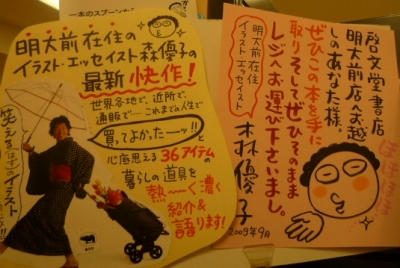 一本のスプーンから
明大前在住の
イラスト・エッセイスト森優子の
最新快作！
世界各地で、近所で、
通販で……これまでの人生で
買ってよかたーーッ!!と
心底思える36アイテムの
暮らしの道具を
熱〜〜く濃く
紹介&
語ります！
笑える(はずの)イラスト
啓文堂書店
明大前店へお越
しのあなた様。
ぜひこの本を手に
取りそしてぜひそのまま
レジへお運び下さいまし。
明大前在住
イラストエッセイスト
森優子
2009年9月